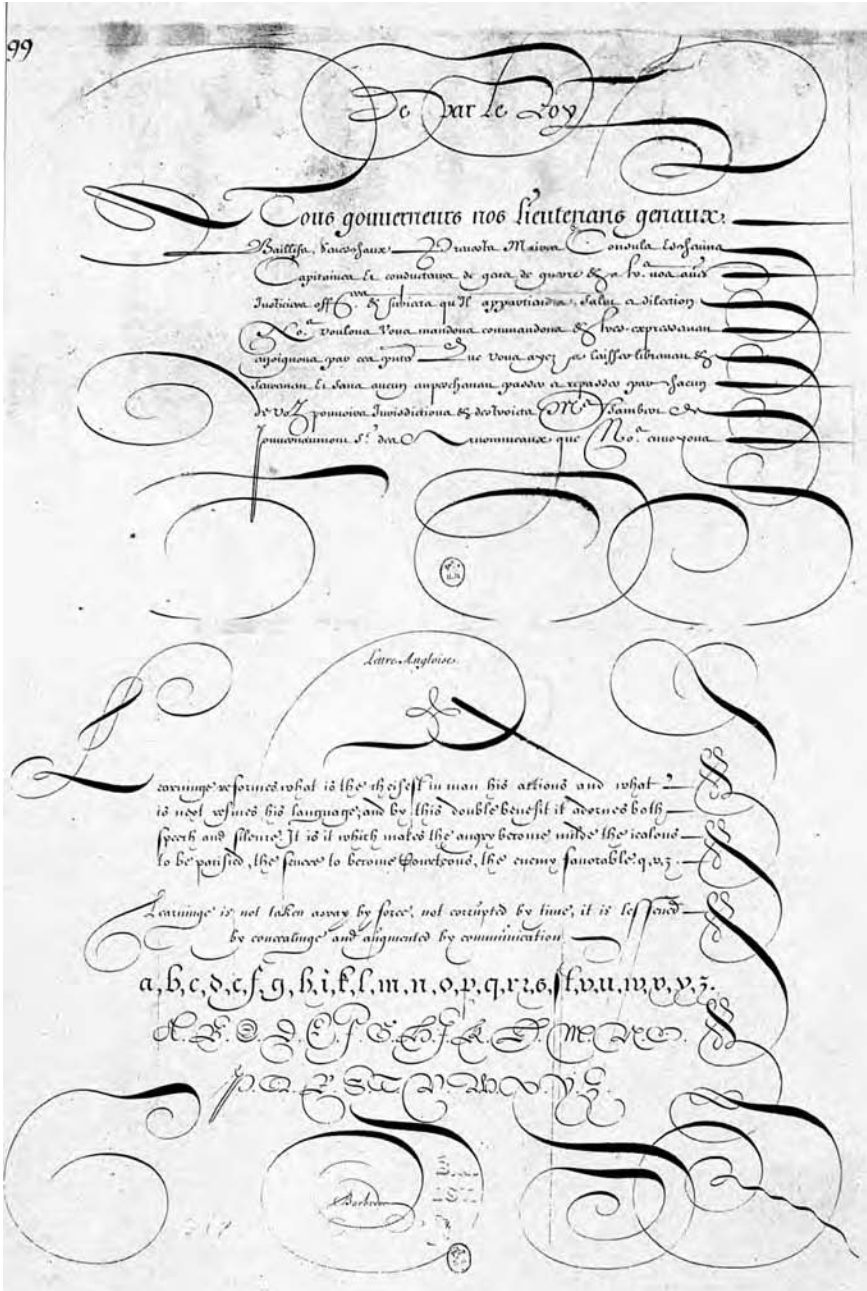 99
De par le Roy
Tous gouuerneurs nos lieutenans genaux
Baillifs, Seneschaux Preuosts Maieurs Consuls Escheuins
Capitaines Et conducteurs de gens de guerre &
Justiciers off.ers & subiects qu'Il appartiendra, Salut et dilection
No.s voulons Vous mandons commandons & tres expressemen
enioignons par ces pntes que Vous ayez a laisser libremen &
seuremen Et sans aucun empeschemen passer et repasser par chacun
de Voz pouuoirs Jurisdictions & destroicts
que No.s enuoyons
Lettre Angloise.
Learninge reformes what is the cheifest in man his actions and what
is next refines his language, and by this double benefit it adornes both
speech and silence. It is it which makes the angry become milde the iealous
to be pacified, the seuere to become Courteous, the enemy fauorable. q, v, z.
Learninge is not taken away by force, not corrupted by time, it is lessened
by concealinge and augmented by communication
a, b, c, d, e, f, g, h, i, k, l, m, n, o, p, q, r z, s, ſ t, v, u, w, x, y, z.
A. B. C. D. E. F. G. H. I. K. L. M. N. O.
P. Q. R. S T. V. W. X. Y. Z.
Barbedor